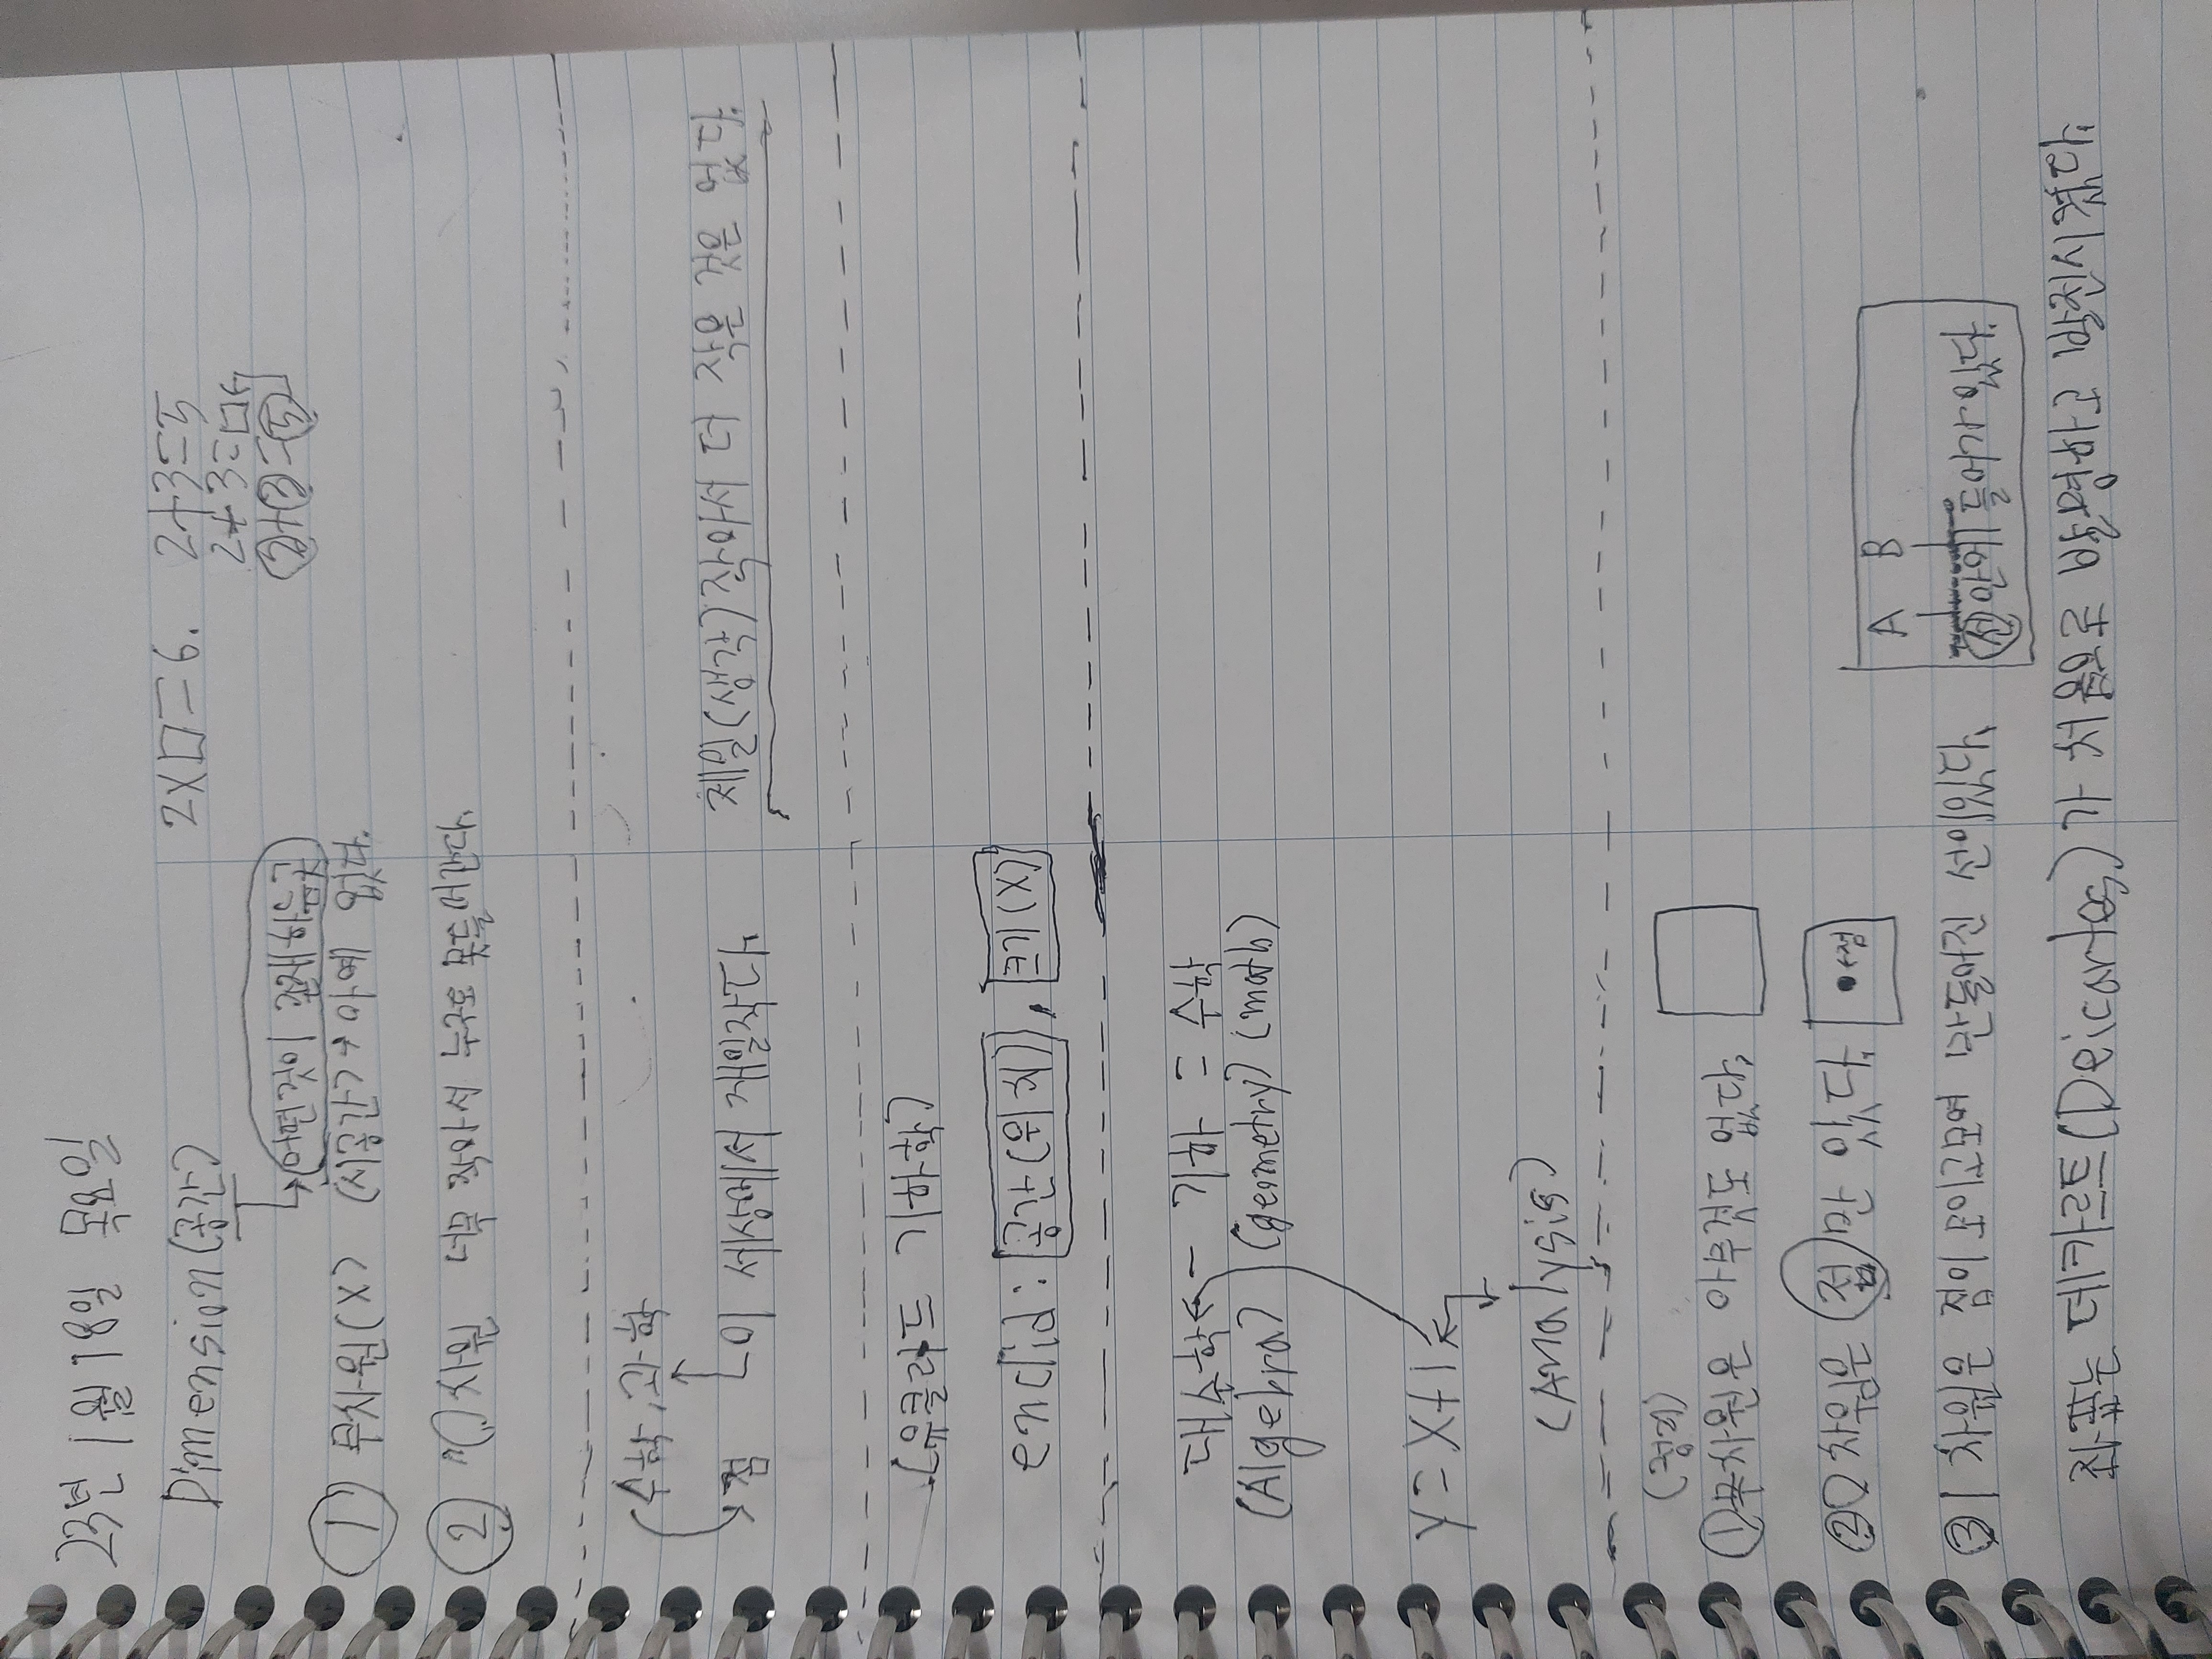 23년 1월 18일 목요일
Dimension(공간) 2X□=6. 2+3=5
2+3=□
②+③=⑤
→어떤것이 존재하는
① 무차원(X) (시공간?→아예 없다.
② 0차원 너무 작아서 누구도 못들어간다.
수학,과학
점 이 세상에서 제일작다. 제일(생각)작아서 더 작은 것은 없다.
(유클리드 기하학)
enclid: 공간(위치), 크기(X)
대수학 - 기하 = 수학
(Algebra) (geometry) (math)
y=x+1
(Analysis)
(경계)
①무차원은 아무것도 없다.
②0차원은 점 하나 있다. 점
A B
③1차원은 점이모이고모여 만들어진 선이있다. 선안에 들어가있다.
좌표는 데카르트(Descartes)가 처음으로 방향과 방법을 제시했다.